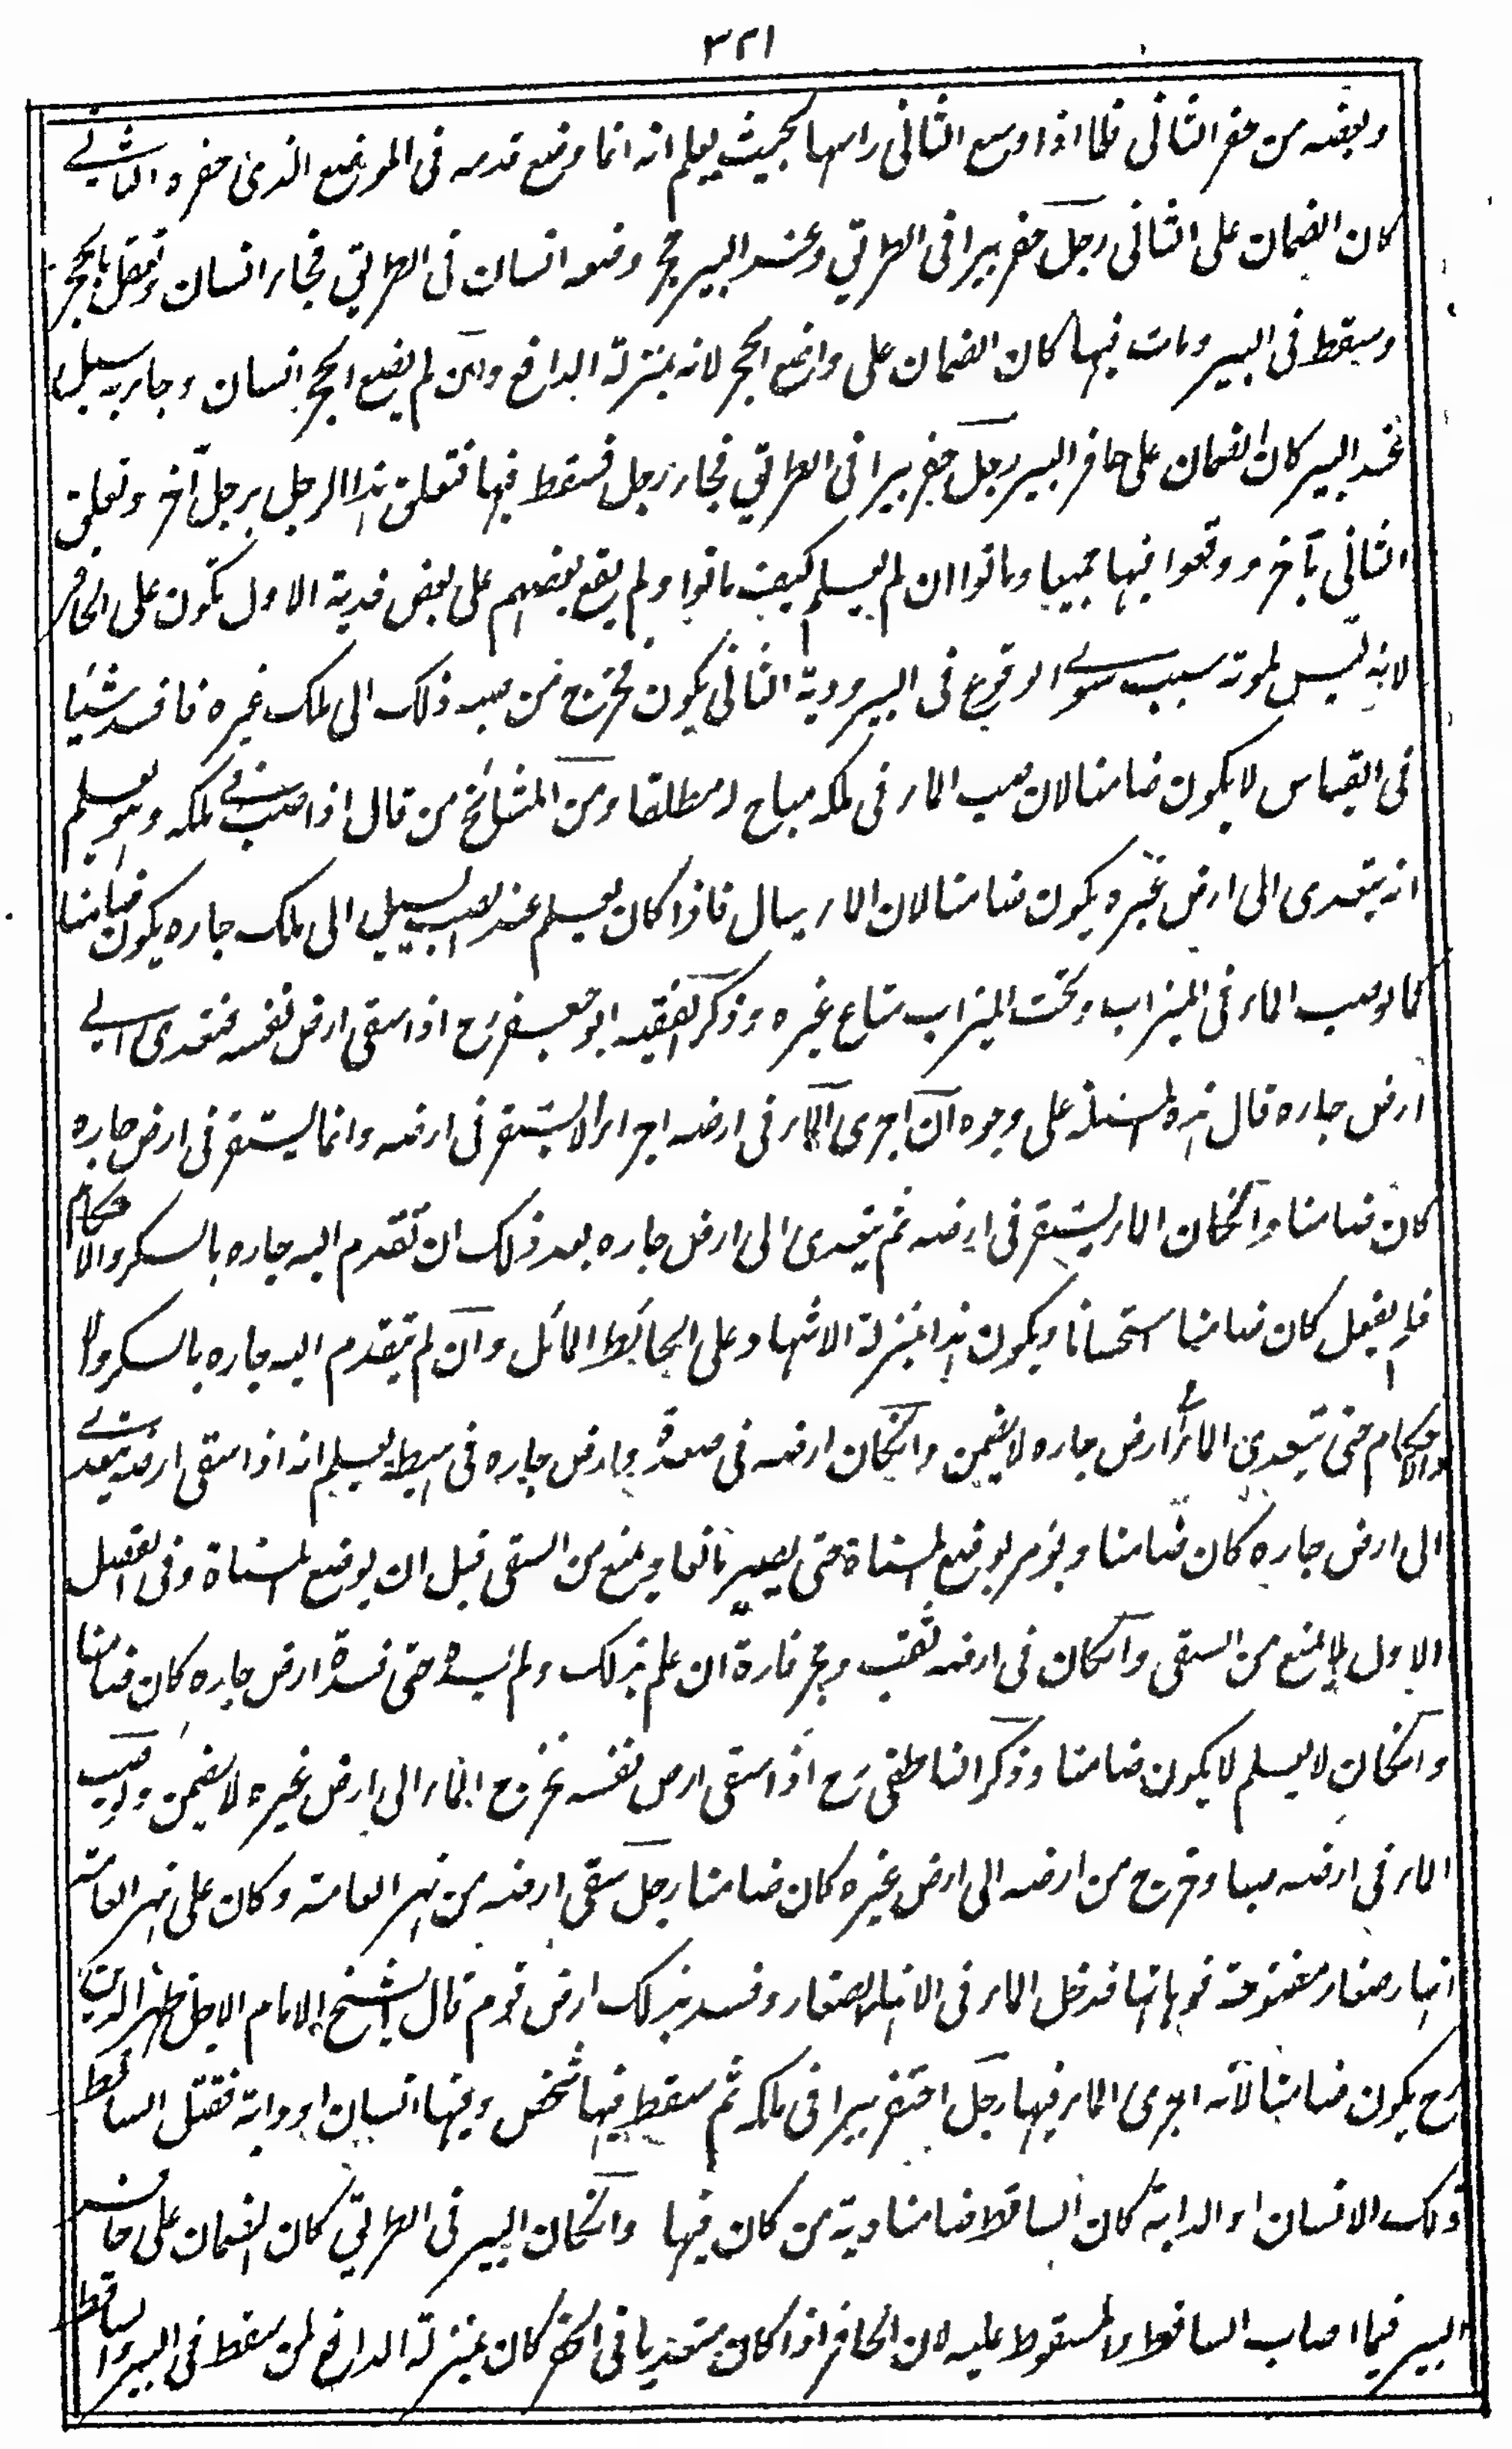 ٣٢١
وبعضه من حفر الثانى فاما اذا وسع الثانى راسها بحيث يعلم انه انما وضع قدمه فى الموضع الذى حفره الثانى
كان الضمان على الثانى رجل حفر بيرا فى الطريق وعند البير حجر وضعه انسان فى الطريق فجاء انسان وتعقل بالحجر
وسقط فى البير ومات فيها كان الضمان على واضع الحجر لانه بمنزلة الدافع وان لم يضع الحجر انسان وجاء به سيل
عند البير كان الضمان على حافر البير رجل حفر بيرا فى الطريق فجاء رجل فسقط فيها فتعلق هذا الرجل برجل آخر وتعلق
الثانى بآخر ووقعوا فيها جميعا وماتوا ان لم يعلم كيف ماتوا ولم يقع بعضهم على بعض فدية الاول تكون على الحافر
لانه ليس لموته سبب سوى الوقوع فى البير ودية الثانى يكون فخرج من صبه ذلك الى ملك غيره فافسد شيئا
فى القياس لا يكون ضامنا لان صب الماء فى ملكه مباح له مطلقا ومن المشائخ من قال اذا صب فى ملكه وهو يعلم
انه يتعدى الى ارض غيره يكون ضامنا لان الماء سيال فاذا كان يعلم عند الصب انه يسيل الى ملك جاره يكون ضامنا
كما لو صب الماء فى الميزاب وتحت الميزاب متاع غيره وذكر الفقيه ابو جعفر رح اذا سقى ارض نفسه فتعدى الى
ارض جاره قال هذه المسئلة على وجوه ان اجرى الماء فى ارضه اجراء لا يستقر فى ارضه وانما يستقر فى ارض جاره
كان ضامنا وانكان الماء يستقر فى ارضه ثم يتعدى الى ارض جاره بعد ذلك ان تقدم اليه جاره بالسكر والاحكام
فلم يفعل كان ضامنا استحسانا ويكون هذا بمنزلة الاشهاد على الحائط المائل وان لم يتقدم اليه جاره بالسكر
والاحكام حتى تعدى الماء الى ارض جاره لا يضمن وانكان ارضه فى صعدة وارض جاره فى هبطة يعلم انه اذا سقى ارضه يتعدى
الى ارض جاره كان ضامنا ويؤمر بوضع المسناة حتى يصير مانعا ويمنع من السقى قبل ان يوضع المسناة وفى الفصل
الاول لا يمنع من السقى وانكان فى ارضه ثقب وجحر فارة ان علم بذلك ولم يسده حتى فسدة ارض جاره كان ضامنا
وانكان لا يعلم لا يكون ضامنا وذكر الناطفى رح اذا سقى ارض نفسه فخرج الماء الى ارض غيره لا يضمن ولو صب
الماء فى ارضه صبا وخرج من ارضه الى ارض غيره كان ضامنا رجل سقى ارضه من نهر العامة وكان على نهر العامة
انهار صغار مفتوحة فوهاتها فدخل الماء فى الانهار الصغار وفسد بذلك ارض قوم قال الشيخ الامام الاجل ظهير الدين
رح يكون ضامنا لانه اجرى الماء فيها رجل احتفر بيرا فى ملكه ثم سقط فيها شخص وفيها انسان او دابة فقتل الساقط
ذلك الانسان او الدابة كان الساقط ضامنا دية من كان فيها وانكان البير فى الطريق كان الضمان على حافر
البير فيما اصاب الساقط والمسقوط عليه لان الحافر اذا كان متعديا فى الحفر كان بمنزلة الدافع لمن سقط فى البير والساقط